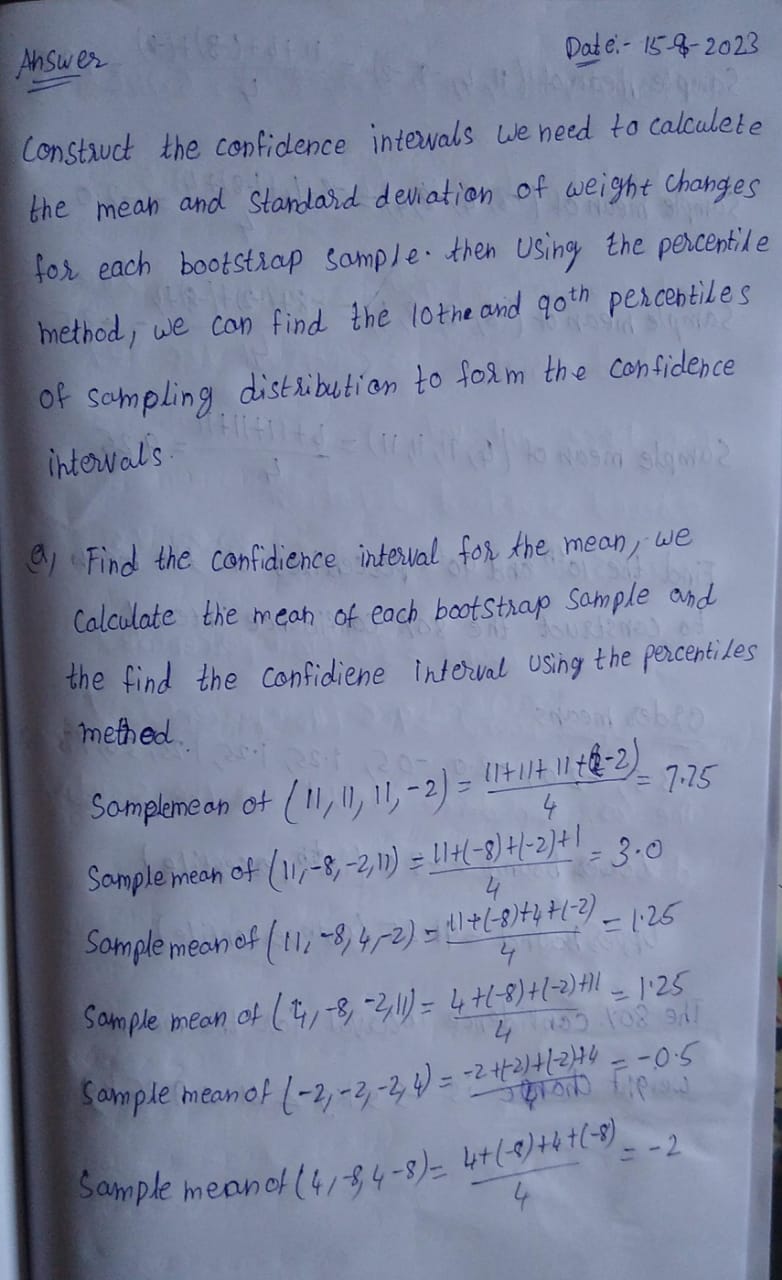 Answer
Date:- 15-8-2023
Construct the confidence intervals we need to calculete
the mean and Standard deviation of weight Changes
for each bootstrap sample. then Using the percentile
method, we can find the 10the and 90th percentiles
of sampling distribution to form the confidence
intervals.
a, Find the confidience interval for the mean, we
Calculate the mean of each bootstrap Sample and
the find the confidiene interval Using the percentiles
method.
Samplemean of (11, 11, 11, -2) = 11+11+11+(-2)/4 = 7.75
Sample mean of (11,-8,-2,11) = 11+(-8)+(-2)+1/4 = 3.0
Sample mean of (11, -8, 4,-2) = 11+(-8)+4+(-2)/4 = 1.25
Sample mean of (4, -8, -2,11) = 4+(-8)+(-2)+11/4 = 1.25
Sample mean of (-2, -2, -2, 4) = -2+(-2)+(-2)+4 = -0.5
Sample mean of (4, -8, 4 -8) = 4+(-8)+4+(-8)/4 = -2